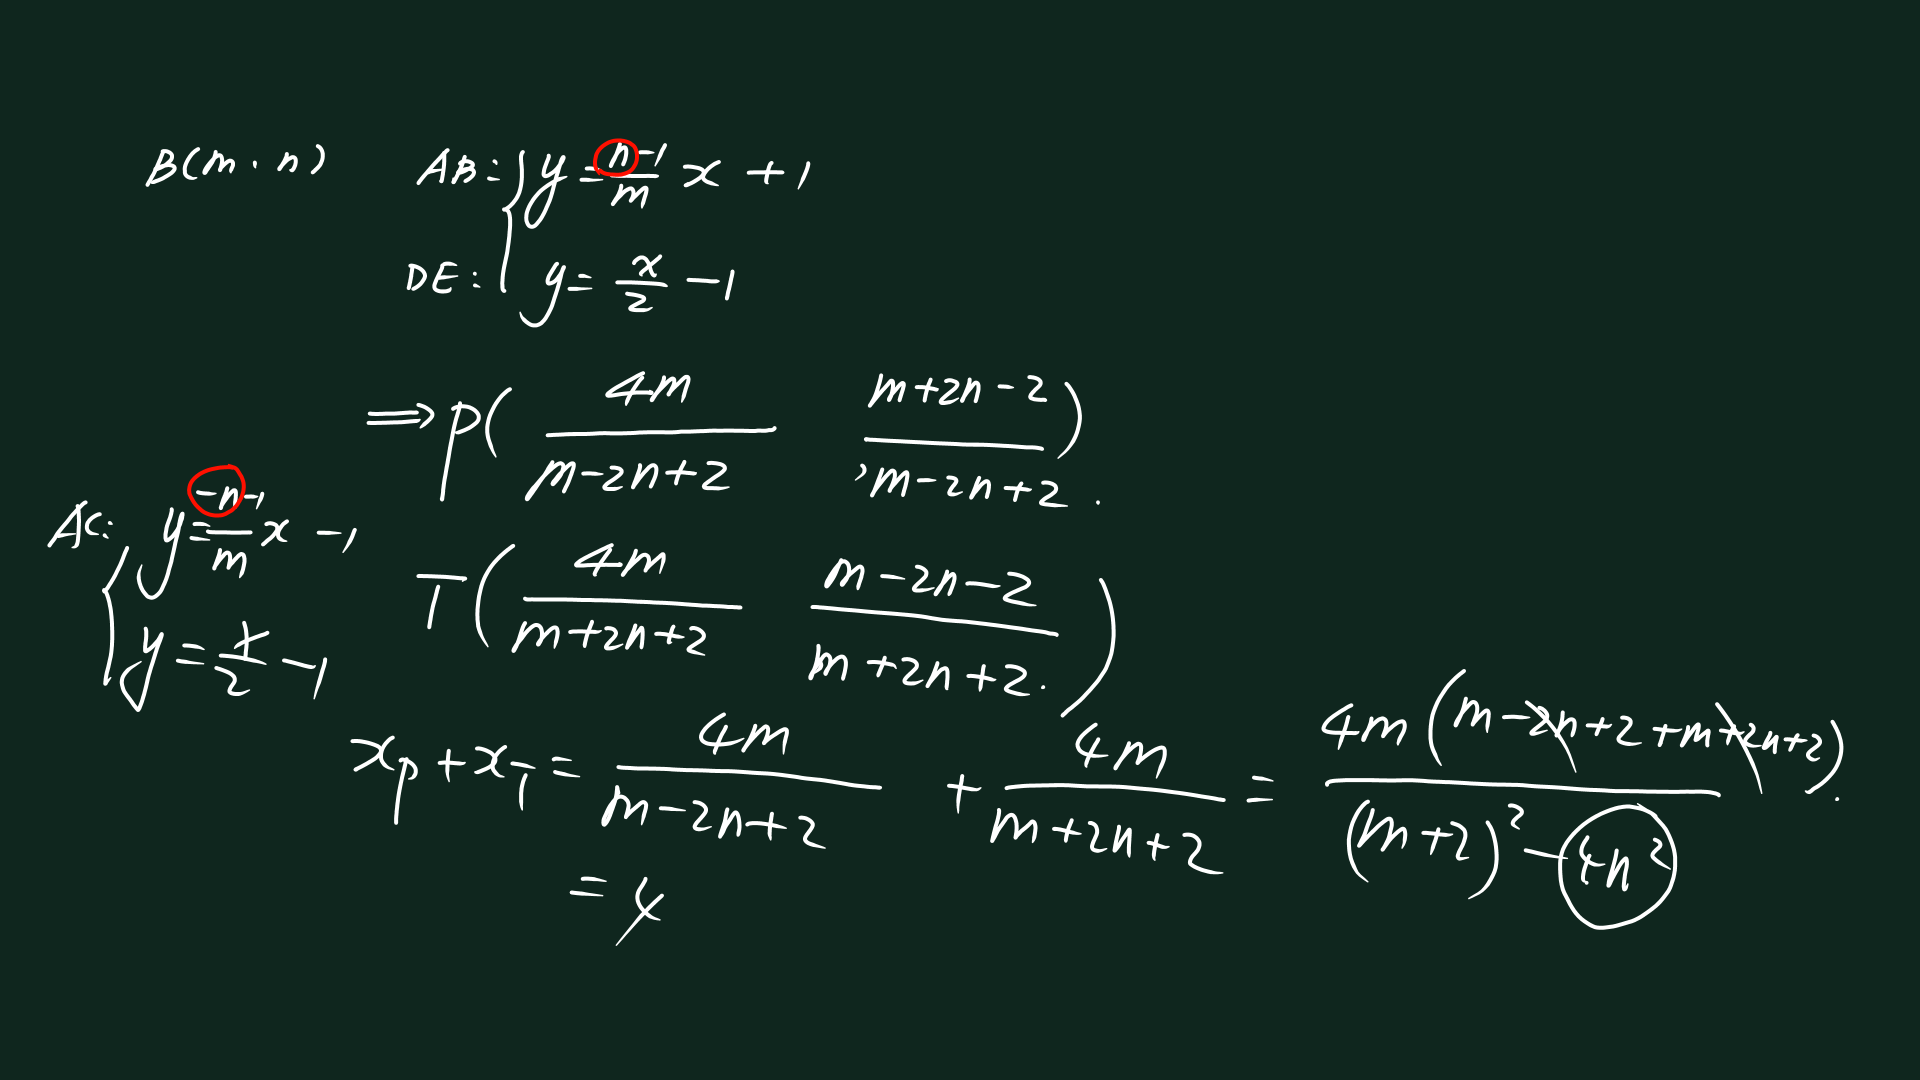 B(m, n) AB: { y = \frac{n-1}{m} x + 1
DE: y = \frac{x}{2} - 1
⇒ P( \frac{4m}{m-2n+2} , \frac{m+2n-2}{m-2n+2} ) .
AC: { y = \frac{-n-1}{m} x - 1
y = \frac{x}{2} - 1
T( \frac{4m}{m+2n+2} \frac{m-2n-2}{m+2n+2} . )
x_P + x_T = \frac{4m}{m-2n+2} + \frac{4m}{m+2n+2} = \frac{4m(m-2n+2+m+2n+2)}{(m+2)^2-4n^2} .
= 4